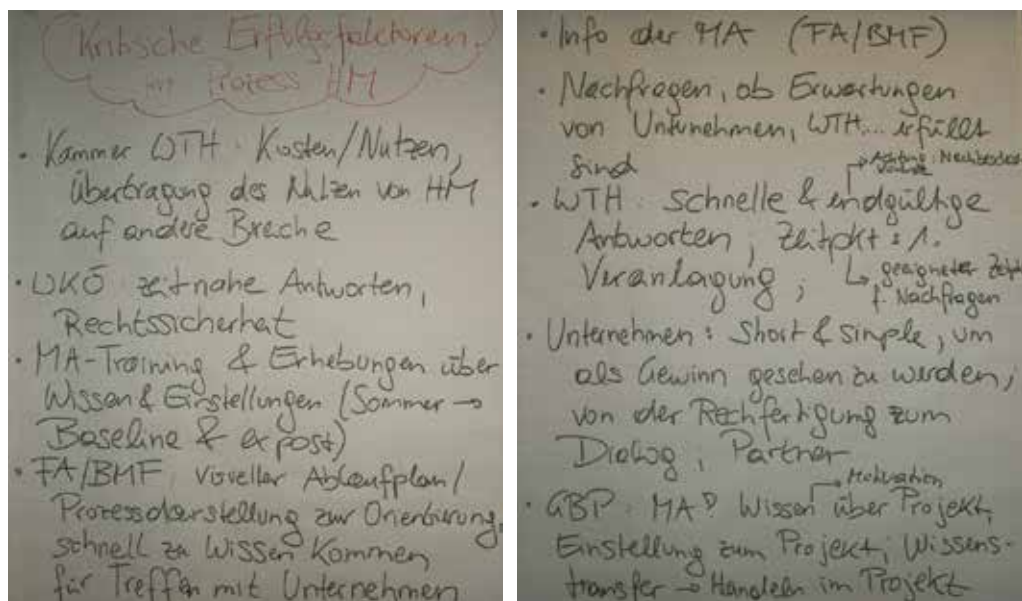 Kritische Erfolgsfaktoren
im Prozess HM
• Kammer WTH: Kosten/Nutzen,
Übertragung des Nutzen von HM
auf andere Breche
• WKÖ: zeitnahe Antworten,
Rechtssicherheit
• MA-Training & Erhebungen über
Wissen & Einstellungen (Sommer →
Baseline & ex post)
• FA/BMF: visueller Ablaufplan/
Prozessdarstellung zur Orientierung,
schnell zu Wissen kommen
für Treffen mit Unternehmen
• Info der MA (FA/BMF)
• Nachfragen, ob Erwartungen
von Unternehmen, WTH... erfüllt
sind
Achtung:
• WTH: schnelle & endgültige
Antworten, Zeitpkt: 1.
Veranlagung;
geeigneter Zeitpkt
f. Nachfragen
• Unternehmen: Short & simple, um
als Gewinn gesehen zu werden,
von der Rechfertigung zum
Dialog, Partner
Motivation
• GBP: MA Wissen über Projekt,
Einstellung zum Projekt, Wissens-
transfer → Handeln im Projekt